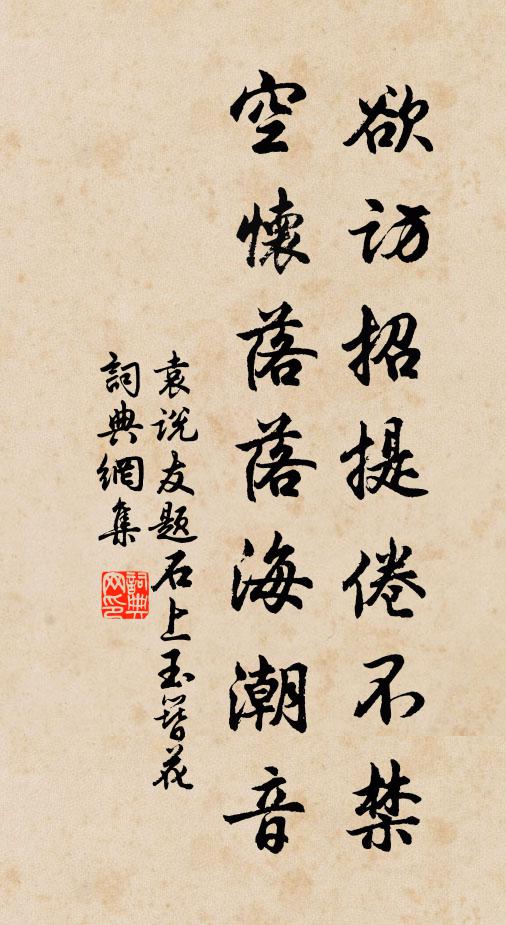 欲访招提倦不禁
空懷落落海潮音
袁说友题石上玉簪花
詞典網集
詞典网印